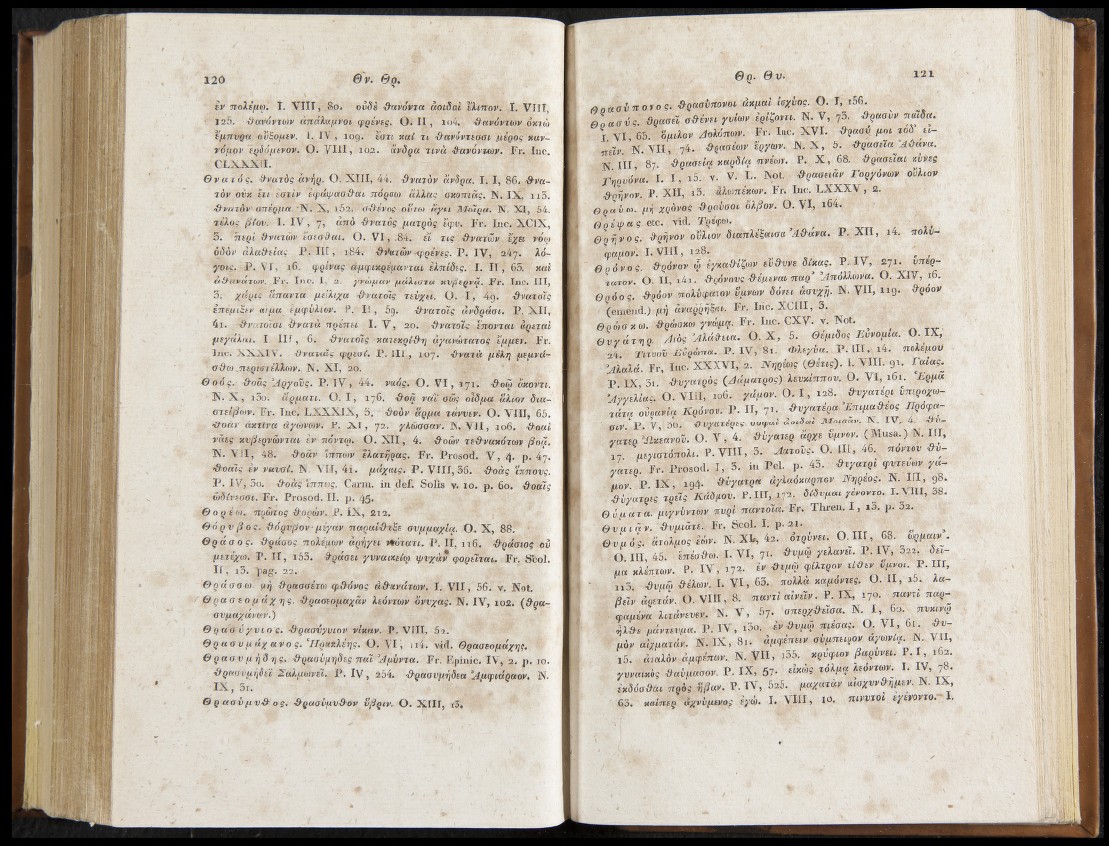 120
Θν. Θρ.
ἐν πολέμῳ. I. VIII, 80. οὐδὲ θανόντα ἀοιδαὶ ἔλιπον. I. VIII,
125. θανόντων ἀπάλαμνοι φρένες. O. II, 104. θανόντων ὀκτὼ
ἔμπυρα αὔξομεν. I. IV, 109. ἔστι καί τι θανόντεσσι μέρος καν-
νόμον ἐρδόμενον. O. VIII, 102. ἄνδρα τινὰ θανόντων. Fr. Inc.
CLXXXII.
Θνατός. θνατὸς ἀνήρ. O. XIII, 44. θνατὸν ἄνδρα. I. I, 86. θνα-
τὸν οὐκ ἔτι ἐστὶν ἐφάψασθαι πόρσω ἄλλας σκοπιᾶς. N. IX, 113.
θνατὸν σπέρμα N. X, 152. σθένος οὕτω ἄγει Μοῖρα. N. XI, 54.
τέλος βίου. I. IV, 7, ἀπὸ θνατᾶς ματρὸς ἔφυ. Fr. Inc. XCIX,
3. περὶ θνατῶν ἔσεσθαι. O. VI, 84. εἰ τις θνατῶν ἔχει νόῳ
ὁδὸν ἀλαθείας P. III, 184. θνατῶν φρένες. P. IV, 247. λό-
γοις. P. VI, 16. φρένας ἀμφικρέμανται ἐλπίδες. I. II, 63. καὶ
ἀθανάτων. Fr. Inc. I, 2. γνώμαν μάλιστα κυβερνᾷ. Fr. Inc. III,
3. χάρις ἅπαντα μείλιχα θνατοῖς τεύχει. O. I, 49. θνατοῖς
ἐπέμιξεν αἷμα ἐμφύλιον. P. II, 59. θνατοῖς ἀνδράσι. P. XII,
41. θνατοῖσι θνατὰ πρέπει I. V, 20. θνατοῖς ἕπονται ἀρεταὶ
μεγάλαι. I III, 6. θνατοῖς κατεκρίθη ἀγανώτατος ἔμμεν. Fr.
Inc. XXXIV. θναταῖς φρεσί. P. III, 107. θνατὰ μέλη μεμνά-
σθω περιστέλλων. N. XI, 20.
Θοός. θοῦς Ἀργοῦς. P. IV, 44. ναός. O. VI, 171. θοῷ ἄκοντι.
N. X, 130. ἅρματι. O. I, 176. θοᾷ ναΐ σῶς οἶδμα ἅλιον δια-
στείβων. Fr. Inc. LXXXIX, 3. θοὸν ἅρμα τάνυεν. O. VIII, 65.
θοᾶν ἀκτῖνα ἀγώνων. P. XI, 72. γλῶσσαν. N. VII, 106. θοαὶ
νᾶες κυβερνῶνται ἐν πόντῳ. O. XII, 4. θοῶν τεθνακότων βοᾷ.
N. VII, 48. θοᾶν ἵππων ἐλατῆρας. Fr. Prosod. V, 4. p. 47.
θοαῖς ἐν ναυσί. N. VII, 41. μάχαις. P. VIII, 36. θοὰς ἵππους.
P. IV, 30. θοὰς ἵππους. Carm. in def. Solis v. 10. p. 60. θοαῖς
ὠδίνεσσι. Fr. Prosod. II. p. 45.
Θορέω. πρῶτος θορών. P. IX, 212.
Θόρυβος. θόρυβον μέγαν παραίθυξε συμμαχίᾳ. O. X, 88.
Θράσος. θράσος πολέμων ἀρήγει νεότατι. P. II, 116. θράσιος οὗ
μετέχω. P. II, 153. θράσει γυναικείῳ ψυχὰν φορεῖται. Fr. Scol.
II, 13. pag. 22.
Θράσσω μὴ θρασσέτω φθόνος ἀθανάτων. I. VII, 56. v. Not.
Θρασεομάχης. θρασεομαχᾶν λεόντων ὄνυχας. N. IV, 102. (θρα-
συμαχάνων.)
Θρασύγυιος. θρασύγυιον νίκαν. P. VIII, 52.
Θρασυμάχανος. Ἡρακλέης. O. VI, 114. vid. Θρασεομάχης.
Θρασυμήδης. θρασύμηδες παῖ Ἀμύντα. Fr. Epinic. IV, 2. p. 10.
θρασυμήδεϊ Σαλμωνεῖ. P. IV, 254. θρασυμήδεα Ἀμφιάραον. N.
IX, 31.
Θρασύμυθος. θρασύμυθον ὕβριν. O. XIII, 13.
Θρ. Θυ.
121
Θρασύπονος. θρασύπονοι ἀκμαὶ ἰσχύος. O. I, 156.
Θρασύς. θρασεῖ σθένει γυίων ἐρίζοντι. N. V, 73. θρασὺν παῖδα.
I. VI, 65. ὅμιλον Δολόπων. Fr. Inc. XVI. θρασύ μοι τόδ' εἰ-
πεῖν. N. VII, 74. θρασέων ἔργων. N. X, 5. θρασεῖα Ἀθάνα.
N. III, 87. θρασείᾳ καρδίᾳ πνέων. P. X, 68. θρασεῖαι κύνες
Γηρυόνα. I. I, 15. v. V. L. Not. θρασειᾶν Γοργόνων οὔλιον
θρῆνον. P. XII, 13. ἀλωπέκων. Fr. Inc. LXXXV, 2.
Θραύω. μὴ χρόνος θραύσοι ὄλβον. O. VI, 164.
Θρέψας etc. vid. Τρέφω.
Θρῆνος. θρῆνον οὔλιον διαπλέξαισα Ἀθάνα. P. XII, 14. πολύ-
φαμον. I. VIII, 128.
Θρόνος. θρόνον ᾧ ἐγκαθίζων εὔθυνε δίκας. P. IV, 271. ὑπέρ-
τατον. O. II, 141. θρόνους θέμεναι παρ' Ἀπόλλωνα. O. XIV, 16.
Θρόος. θρόον πολύφατον ὕμνων δόνει ἀσυχῇ. N. VII, 119. θρόον
(emend.) μὴ ἀναρρῆξαι. Fr. Inc. XCIII, 3.
Θρώσκω. θρώσκω γνώμᾳ. Fr. Inc. CXV. v. Not.
Θυγάτηρ Διὸς Ἀλάθεια. O. X, 5. Θέμιδος Εὐνομία. O. IX,
24. Τιτυοῦ Εὐρώπα. P. IV, 81. Φλεγύα. P. III, 14. πολέμου
Ἀλαλά. Fr. Inc. XXXVI, 2. Νηρέως (Θέτις). I. VIII. 91. Γαίας.
P. IX, 31. θυγατρὸς (Δάματρος) λευκίππου. O. VI, 161. Ἑρμᾶ
Ἀγγελίας. O. VIII, 106. γάμον. O. I, 128. θυγατέρι ὑπεροχω-
τάτᾳ οὐρανίᾳ Κρόνου. P. II, 71. θυγατέρα Ἐπιμαθέος Πρόφα-
σιν. P. V, 36. θυγατέρες σοφαὶ ἀοιδαὶ Μοισᾶν. N. IV, 4. θύ-
γατερ Ὠκεανοῦ. O. V, 4. θύγατερ ἄρχε ὕμνον. (Musa.) N. III,
17. μεγιστόπολι. P. VIII, 3. Λατοῦς. O. III, 46. πόντου θύ-
γατερ. Fr. Prosod. I, 3. in Pel. p. 43. θυγατρὶ φυτεύων γά-
μον. P. IX, 194. θύγατρα ἀγλαόκαρπον Νηρέος. N. III, 98.
θύγατρες τρεῖς Κάδμου. P. III, 172. δίδυμαι γένοντο. I. VIII, 38.
Θύματα. μιγνύντων πυρὶ παντοῖα. Fr. Thren. I, 13. p. 32.
Θυμιᾶν. θυμιᾶτε. Fr. Scol. I. p. 21.
Θυμός. ἄτολμος ἐών. N. XI, 42. ὀτρύνει. O. III, 68. ὥρμαιν'.
O. III, 45. ἑπέσθω. I. VI, 71. θυμῷ γελανεῖ. P. IV, 322. δεῖ-
μα κλέπτων. P. IV, 172. ἐν θυμῷ φίλτρον τίθεν ὕμνοι. P. III,
113. θυμῷ θέλων. I. VI, 63. πολλὰ καμόντες. O. II, 15. λα-
βεῖν ἀρετάν. O. VIII, 8. παντὶ αἰνεῖν. P. IX, 170. παντὶ παρ-
φαμένα λιτάνευεν. N. V, 57. σπερχθεῖσα. N. I, 60. πυκινῷ
ἦλθε μάντευμα. P. IV, 130. ἐν θυμῷ πιέσας. O. VI, 61. θυ-
μὸν αἰχματάν. N. IX, 81. ἀμφέπειν σύμπειρον ἀγωνίᾳ. N. VII,
15. ἀταλὸν ἀμφέπων. N. VII, 135. κρύφιον βαρύνει. P. I, 162.
γυναικὸς θαύμασον. P. IX, 57. εἰκὼς τόλμᾳ λεόντων. I. IV, 78.
ἐκδόσθαι πρὸς ἥβαν. P. IV, 525. μαχατὰν αἰσχυνθῆμεν. N. IX,
63. καίπερ ἀχνύμενος ἐγώ. I. VIII, 10. πινυτοὶ ἐγένοντο. I.